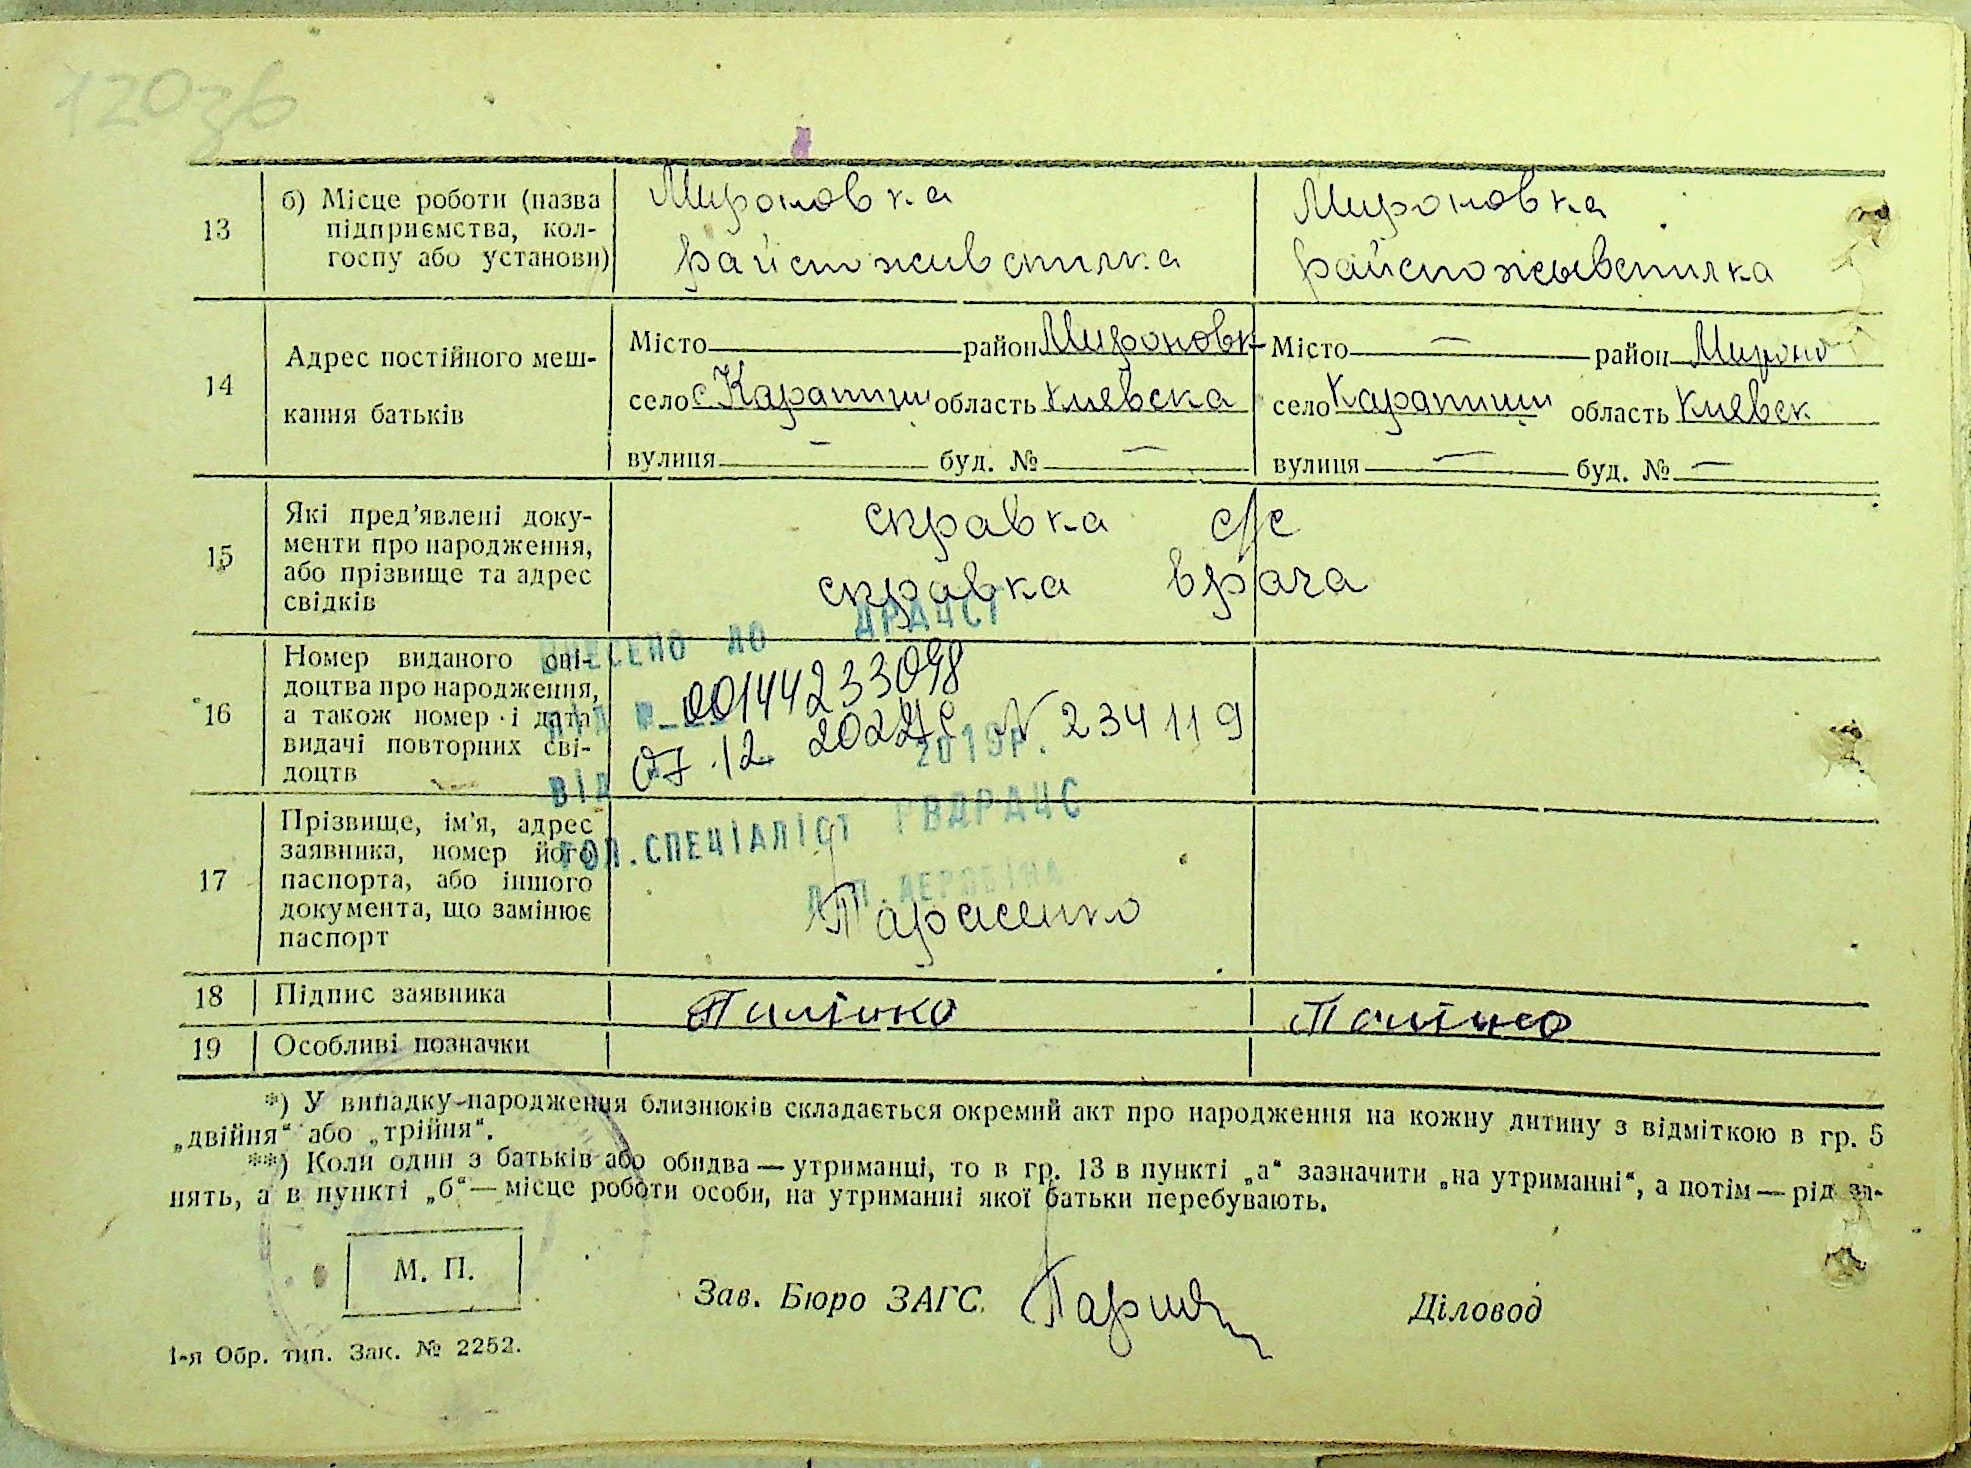 120зв
13 б) Місце роботи (назва Мироновка Мироновка
підприємства, кол-
госпу або установи) райспоживспилка райспожывспилка
Місто район Мироновк Місто — район Мироно
14 Адрес постійного меш-
село с Карапиши область Киевска село Карапиши область Киевск
кання батьків
вулиця — буд. № — вулиця — буд. № —
Які пред'явлені доку- справка с/с
менти про народження,
15 або прізвище та адрес справка врача
свідків
ВНЕСЕНО ДО ДРАЦСГ
Номер виданого сві-
доцтва про народження, 00144233098
16 а також номер і дата № 234119
видачі повторних сві- 07.12.2022
доцтв
ВІД 2019р.
Прізвище, ім'я, адрес
заявника, номер його ГОЛ.СПЕЦІАЛІСТ РВДРАЦС
17 паспорта, або іншого
документа, що замінює Тарасенко
паспорт
18 Підпис заявника
19 Особливі позначки
*) У випадку народження близнюків складається окремий акт про народження на кожну дитину з відміткою в гр. 5
„двійня“ або „трійня“.
**) Коли один з батьків або обидва — утриманці, то в гр. 13 в пункті „а“ зазначити „на утриманні“, а потім — рід за-
нять, а в пункті „б“ — місце роботи особи, на утриманні якої батьки перебувають.
М. П.
Зав. Бюро ЗАГС Діловод
1-я Обр. тип. Зак. № 2252.